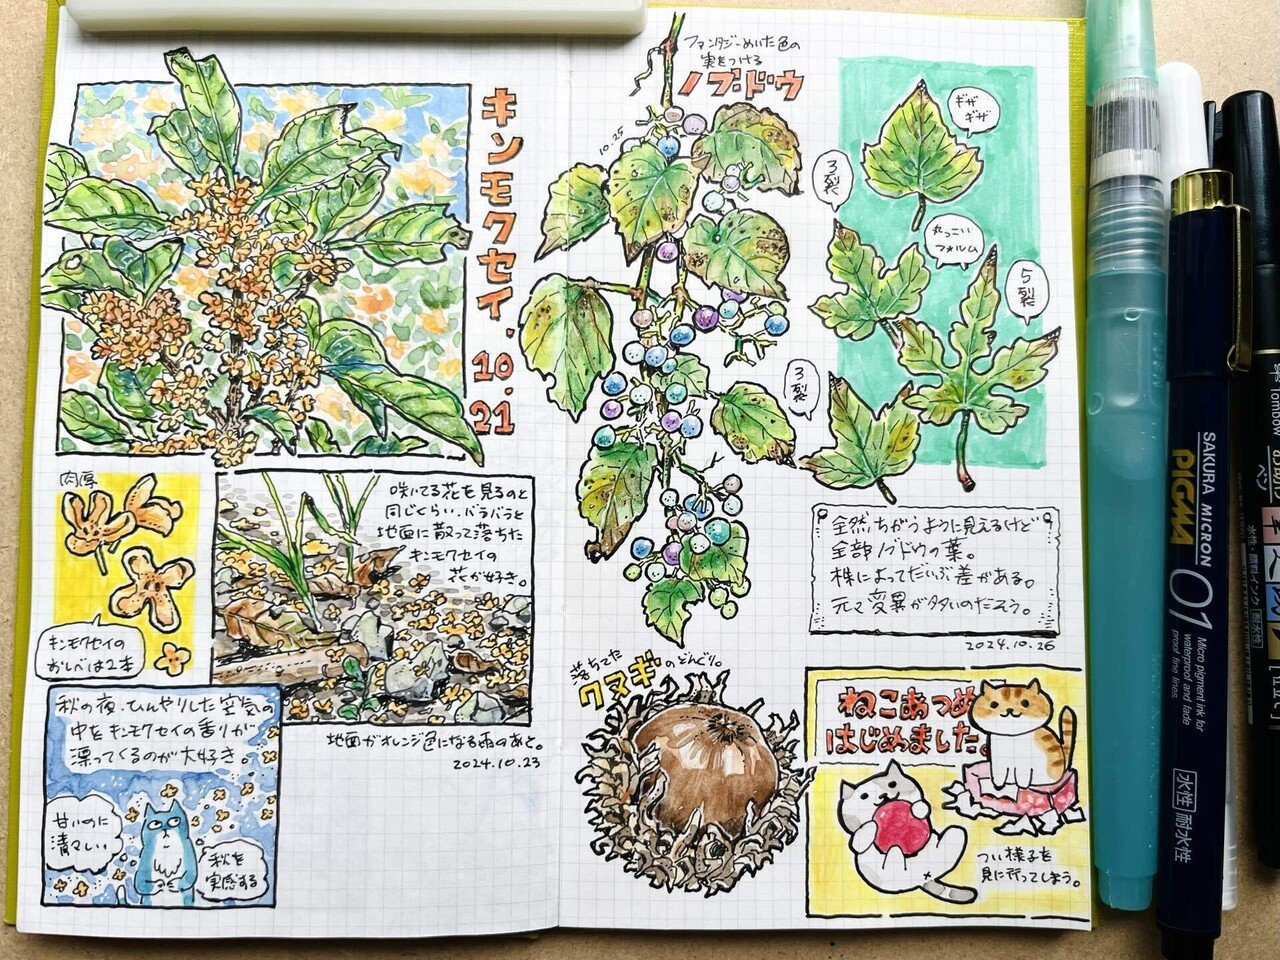 キンモクセイ.
10.21
肉厚
キンモクセイの
おしべは2本
咲いてる花を見るのと
同じくらい、バラバラと
地面に散って落ちた
キンモクセイの
花が好き。
地面がオレンジ色になる雨のあと。
2024.10.23
秋の夜、ひんやりした空気の
中をキンモクセイの香りが
漂ってくるのが大好き。
甘いのに
清々しい
秋を
実感する
ファンタジーめいた色の
実をつける
ノブドウ
10.25
ギザ
ギザ
3裂
丸っこい
フォルム
5裂
3裂
全然ちがうように見えるけど
全部ノブドウの葉。
株によってだいぶ差がある。
元々変異が多いのだそう。
2024.10.26
落ちてた
クヌギのどんぐり。
ねこあつめ
はじめました。
つい様子を
見に行ってしまう。
SAKURA MICRON
PIGMA
01
Micro pigment ink for
waterproof and fade
proof fine lines.
水性
耐水性
Tombow